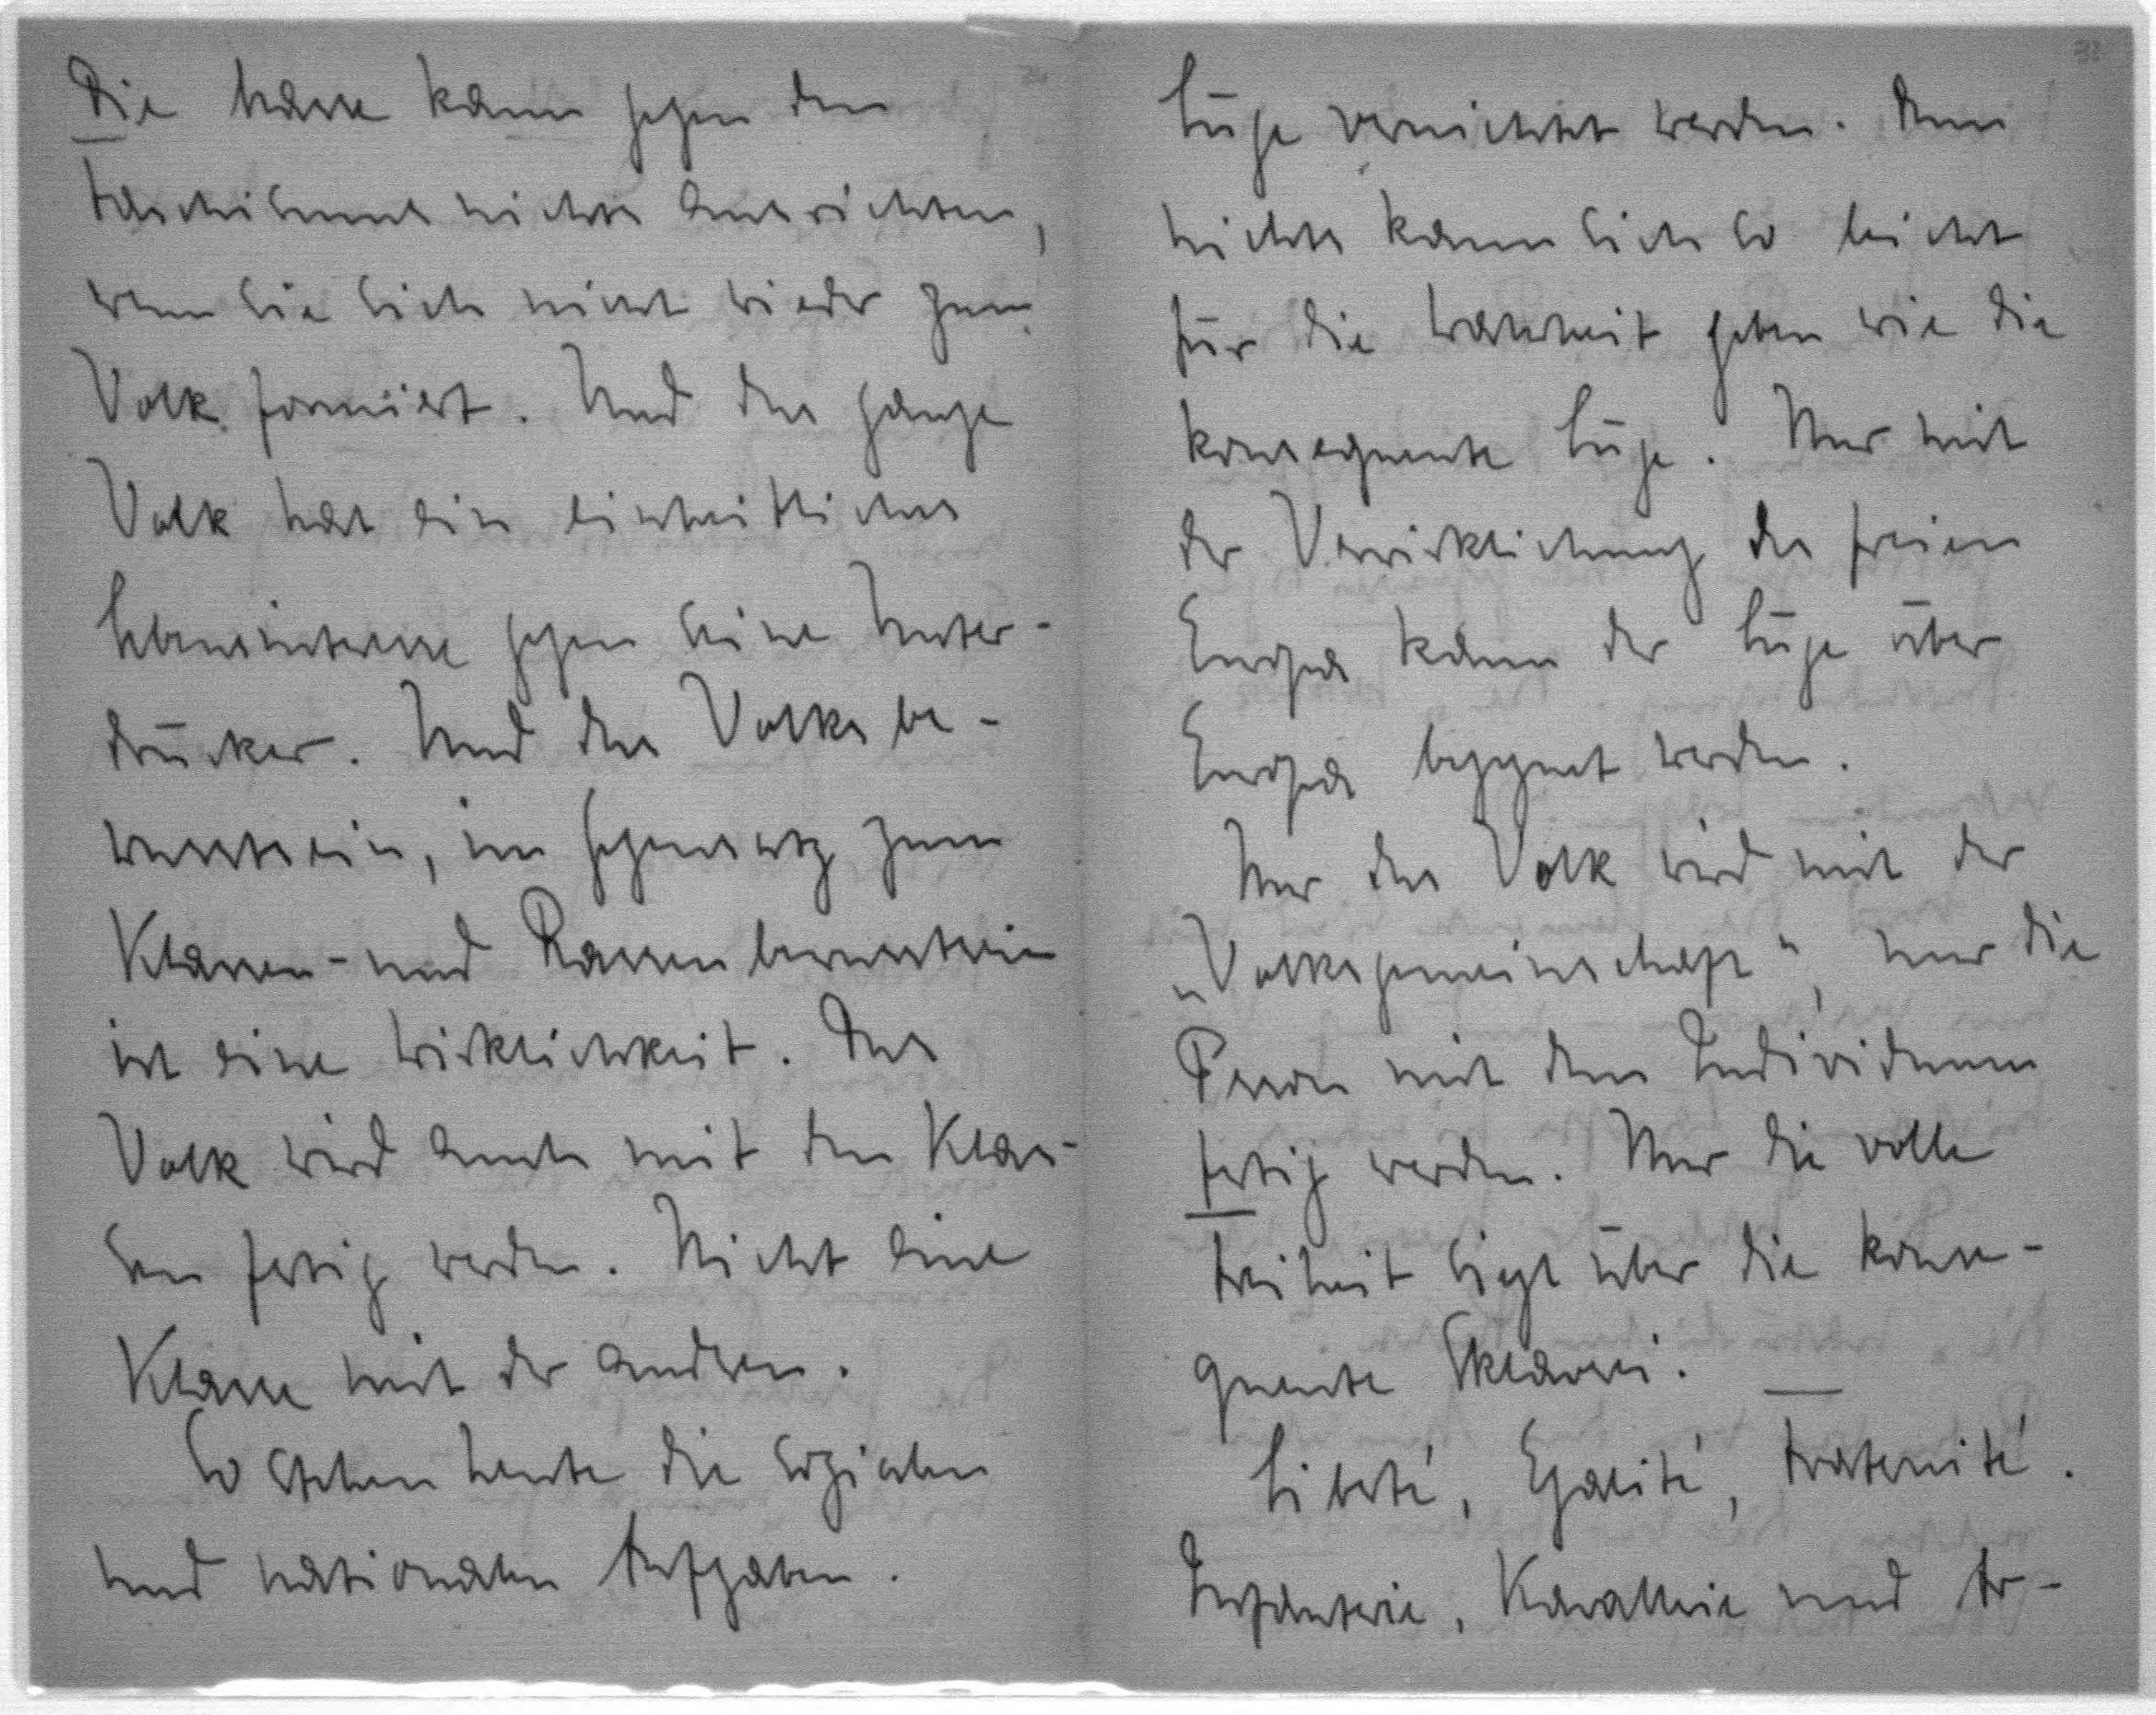 Die Masse kann gegen den
Faschismus nichts ausrichten,
wenn sie sich nicht wieder zum
Volk formiert. Und das ganze
Volk hat ein einheitliches
Lebensinteresse gegen seine Unter-
drücker. Und das Volksbe-
wusstsein, im Gegensatz zum
Klassen- und Rassenbewusstsein
ist eine Wirklichkeit. Das
Volk wird auch mit den Klas-
sen fertig werden. Nicht eine
Klasse mit der andren.
So stehen heute die sozialen
und nationalen Aufgaben.
Lüge vernichtet werden. Denn
nichts kann sich so leicht
für die Wahrheit geben wie die
konsequente Lüge. Nur mit
der Verwirklichung des freien
Europa kann der Lüge über
Europa begegnet werden.
Nur das Volk wird mit der
„Volksgemeinschaft", nur die
Person mit dem Individuum
fertig werden. Nur die volle
Freiheit siegt über die konse-
quente Sklaverei. —
Liberté, Egalité, Fraternité.
Infanterie, Kavallerie und Ar-